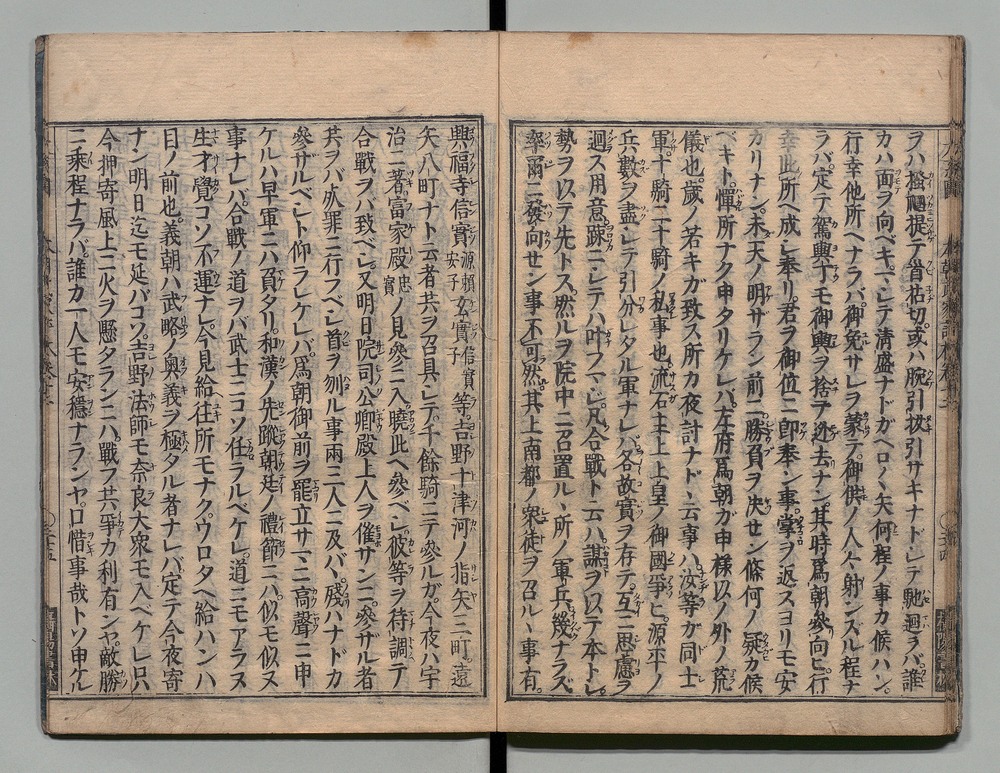 ヲハ搔提テ首祐切或ハ腕引拔引サキナドレテ馳廻ラバ誰
カハ面ヲ向ベキマレテ清盛ナドガヘロヘロ矢何程ノ事カ候ハン
行幸他所ヘナラバ御免サレラ蒙テ御供ノ人々射ンズル程ナ
ラバ定テ駕輿丁モ御輿ヲ捨テ逃去ナン其時爲朝參向ヒ行
幸此所ヘ成レ奉リ君ヲ御位ニ即奉ン事掌ヲ返スヨリモ安
カリナン未天ノ明サラン前ニ勝負ヲ決セン條何ノ疑カ候
ベキト憚所ナク申タリケレバ左府爲朝ガ申樣以ノ外ノ荒
儀也歲ノ若キガ致ス所カ夜討ナドヽ云事ハ汝等ガ同士
軍十騎二十騎ノ私事也流石主上上皇ノ御國爭ヒ源平ノ
兵數ヲ盡レテ引分レタル軍ナレバ各故實ヲ存テ互ニ思慮ヲ
廻ス用意疎ニレテハ叶フマレ凡合戰ト云ハ謀ヲ以テ本トレ
勢ヲ以テ先トス然ルヲ院中ニ召置ルヽ所ノ軍兵幾ナラズ
率爾ニ發向セン事不可然其上南都ノ衆徒ヲ召ルヽ事有
興福寺信實源賴安子玄實信實子等吉野十津河ノ指矢三町遠
矢八町ナト云者共ヲ召具レテ千餘騎ニテ參ルガ今夜ハ宇
治ニ著富家殿忠實ノ見參ニ入曉此ヘ參ベレ彼等ヲ待調テ
合戰ヲバ致ベレ又明日院司公卿殿上人ヲ催サンニ參サル者
共ヲバ死罪ニ行フベレ首ヲ刎ル事兩三人ニ及バヾ殘ハナドカ
參サルベレト仰ラレケレバ爲朝御前ヲ罷立サマニ高聲ニ申
ケルハ早軍ニハ負タリ和漢ノ先蹤朝廷ノ禮節ニハ似モ似ス
事ナレバ合戰ノ道ヲバ武士ニコソ任ラルベケレ道ニモアラヌ
生才覺コソ不運ナレ今見給ヘ住所モナクウロタヘ給ハンハ
目ノ前也義朝ハ武略ノ奥義ヲ極タル者ナレバ定テ今夜寄
ナン明日迄モ延バコソ吉野法師モ奈良大衆モ入ベケレ只
今押寄風上ニ火ヲ懸タランニハ戰フ共爭カ利有ンヤ敵勝
ニ乘程ナラバ誰カ一人モ安穩ナランヤ口惜事哉トソ申ケル